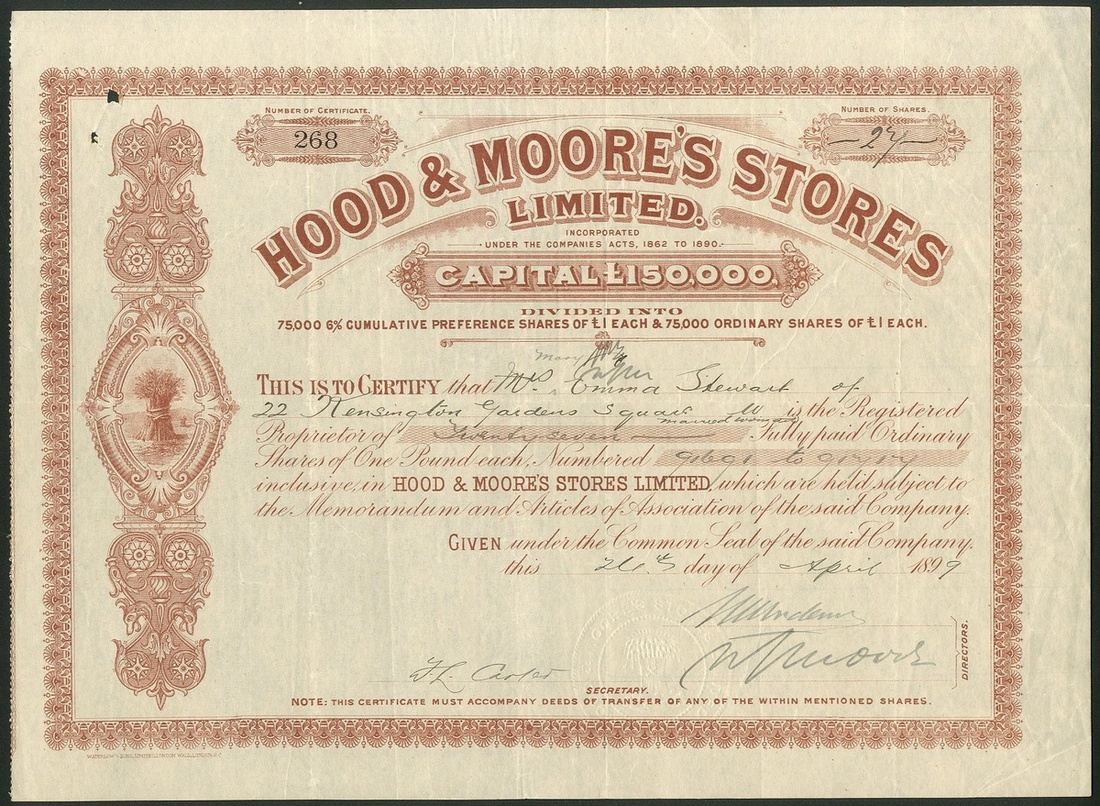 NUMBER OF CERTIFICATE.
268
NUMBER OF SHARES.
27
HOOD & MOORE'S STORES
LIMITED.
INCORPORATED
UNDER THE COMPANIES ACTS, 1862 TO 1890.
CAPITAL £150,000,
DIVIDED INTO
75,000 6% CUMULATIVE PREFERENCE SHARES OF £1 EACH & 75,000 ORDINARY SHARES OF £1 EACH.
Mary
THIS IS TO CERTIFY that Mrs Emma Stewart of
22 Kensington Gardens Square W is the Registered
married woman
Proprietor of Twenty seven Fully paid Ordinary
Shares of One Pound each, Numbered to
inclusive, in HOOD & MOORE'S STORES LIMITED, which are held subject to
the Memorandum and Articles of Association of the said Company.
GIVEN under the Common Seal of the said Company,
this day of April 1899
DIRECTORS.
SECRETARY.
NOTE: THIS CERTIFICATE MUST ACCOMPANY DEEDS OF TRANSFER OF ANY OF THE WITHIN MENTIONED SHARES.